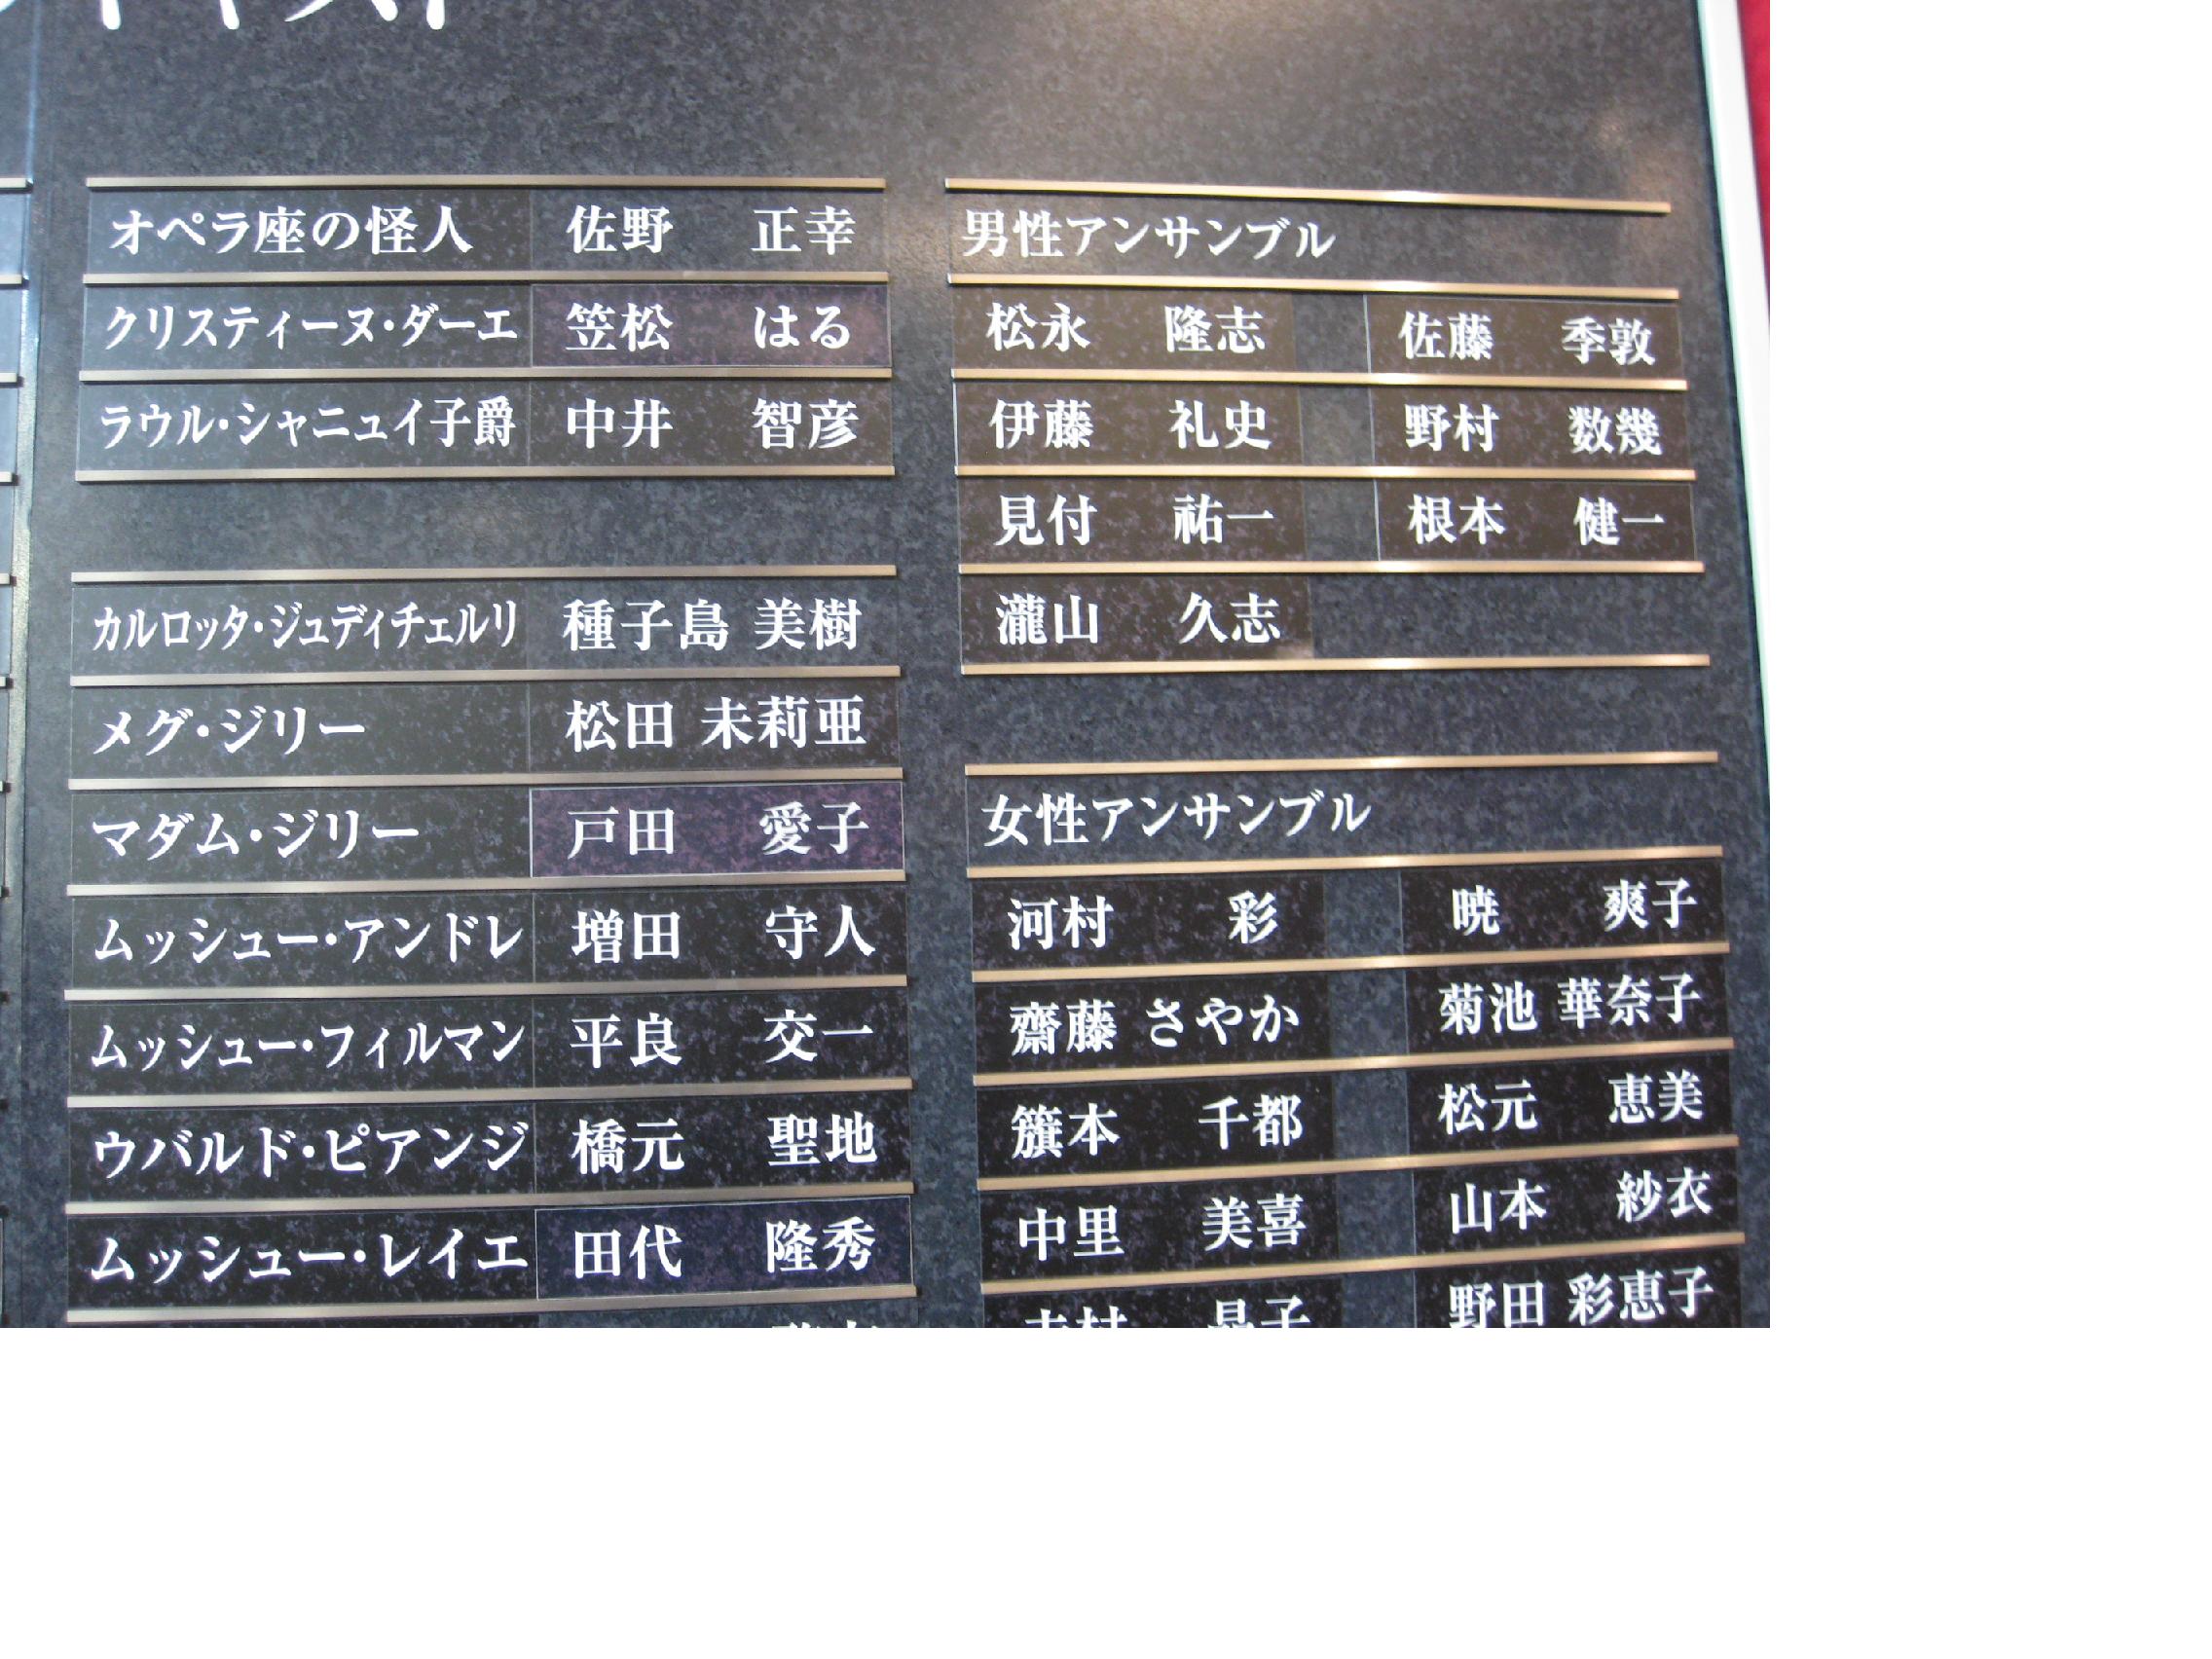 オペラ座の怪人 佐野 正幸
クリスティーヌ・ダーエ 笠松 はる
ラウル・シャニュイ子爵 中井 智彦
カルロッタ・ジュディチェルリ 種子島 美樹
メグ・ジリー 松田 未莉亜
マダム・ジリー 戸田 愛子
ムッシュー・アンドレ 増田 守人
ムッシュー・フィルマン 平良 交一
ウバルド・ピアンジ 橋元 聖地
ムッシュー・レイエ 田代 隆秀
男性アンサンブル
松永 隆志 佐藤 季敦
伊藤 礼史 野村 数幾
見付 祐一 根本 健一
瀧山 久志
女性アンサンブル
河村 彩 暁 爽子
齋藤 さやか 菊池 華奈子
籏本 千都 松元 恵美
中里 美喜 山本 紗衣
野田 彩恵子